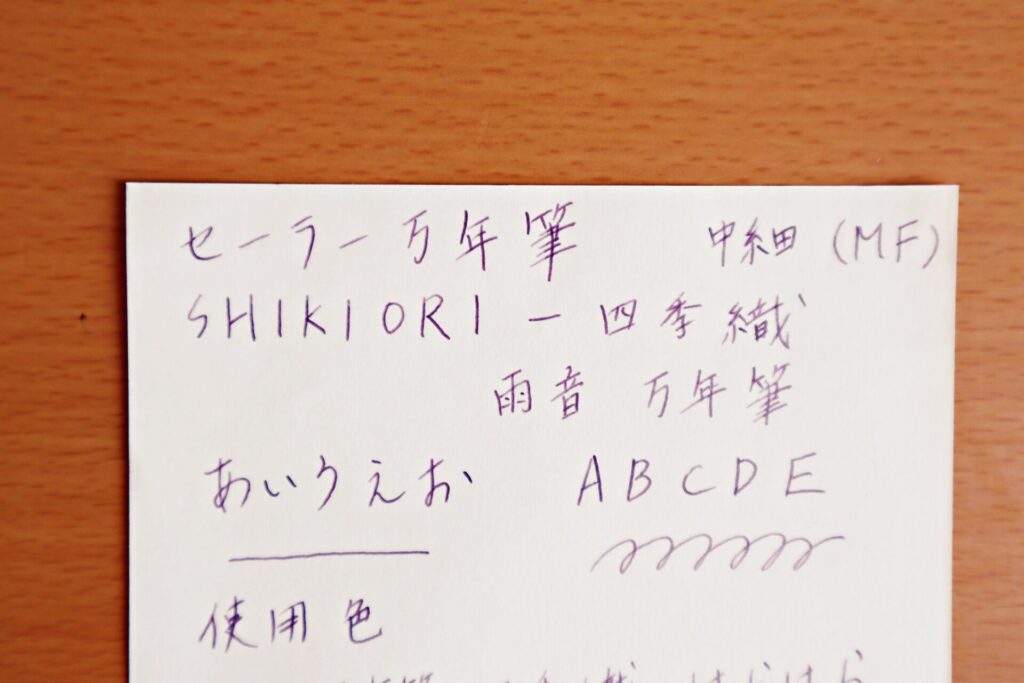 セーラー万年筆 中細（MF）
SHIKIORI － 四季織
雨音 万年筆
あいうえお ABCDE
使用色